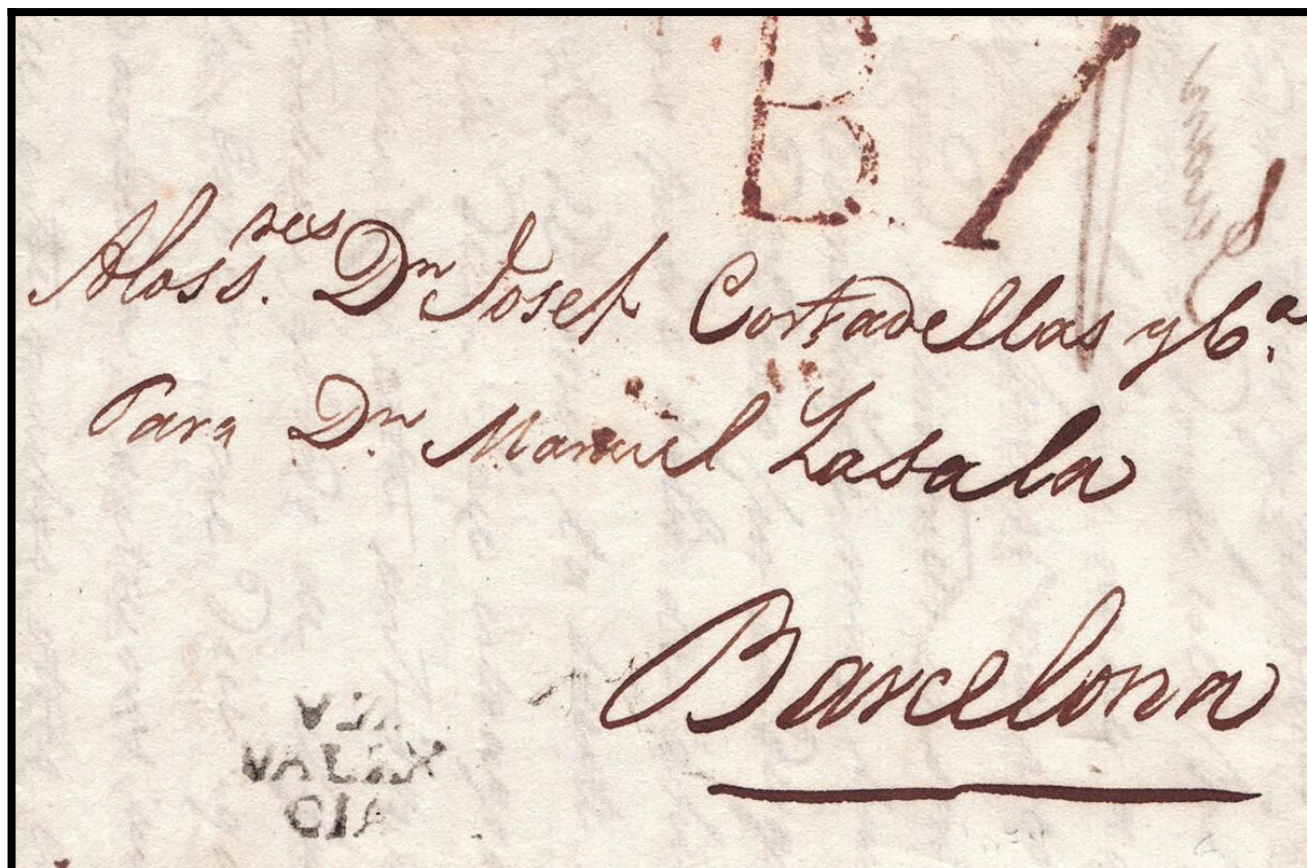 B 7
A los S.res Dn Josef Cortadellas y C.a
Para Dn Manuel Lasala
Barcelona
VALEN
CIA